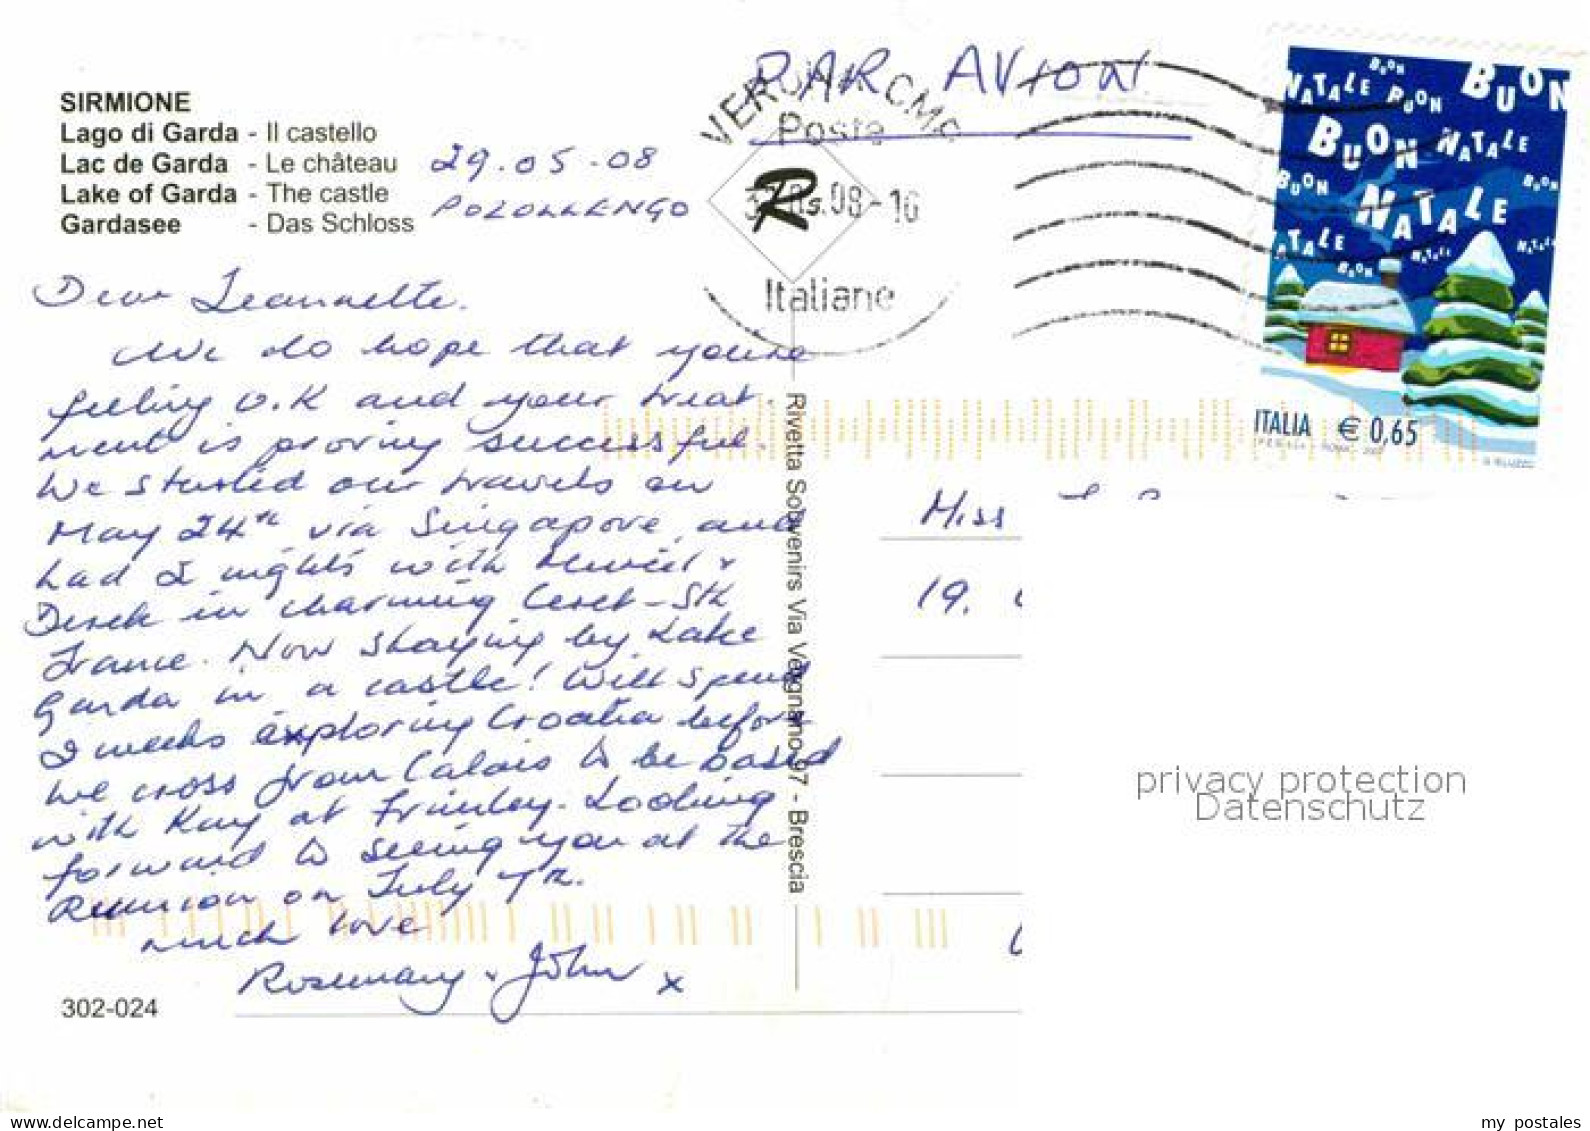 SIRMIONE
Lago di Garda - Il castello
Lac de Garda - Le château
Lake of Garda - The castle
Gardasee - Das Schloss
29.05-08
POZOLLENGO
PAR AVION
VERONA CMP
Poste
Rs
.08-16
Italiane
BUON NATALE
BUON
BUON
NATALE
BUON
BUON
NATALE
BUON
BUON
NATALE
NATALE
NATALE
NATALE
BUON
ITALIA € 0,65
Dear Jeannette.
We do hope that you're
feeling O.K and your treat-
ment is proving successful.
We started our travels on
May 24th via Singapore and
had 2 nights with Muriel &
Derek in charming Ceret - Sth
France. Now staying by Lake
Garda in a castle! Will spend
2 weeks exploring Croatia before
we cross from Calais to be based
with Kay at Frimley. Looking
forward to seeing you at the
Reunion on July 7th.
much love
Rosemary & John x
302-024
Rivetta Souvenirs Via Vergnano 97 - Brescia
Miss
19.
privacy protection
Datenschutz
www.delcampe.net
my_postales